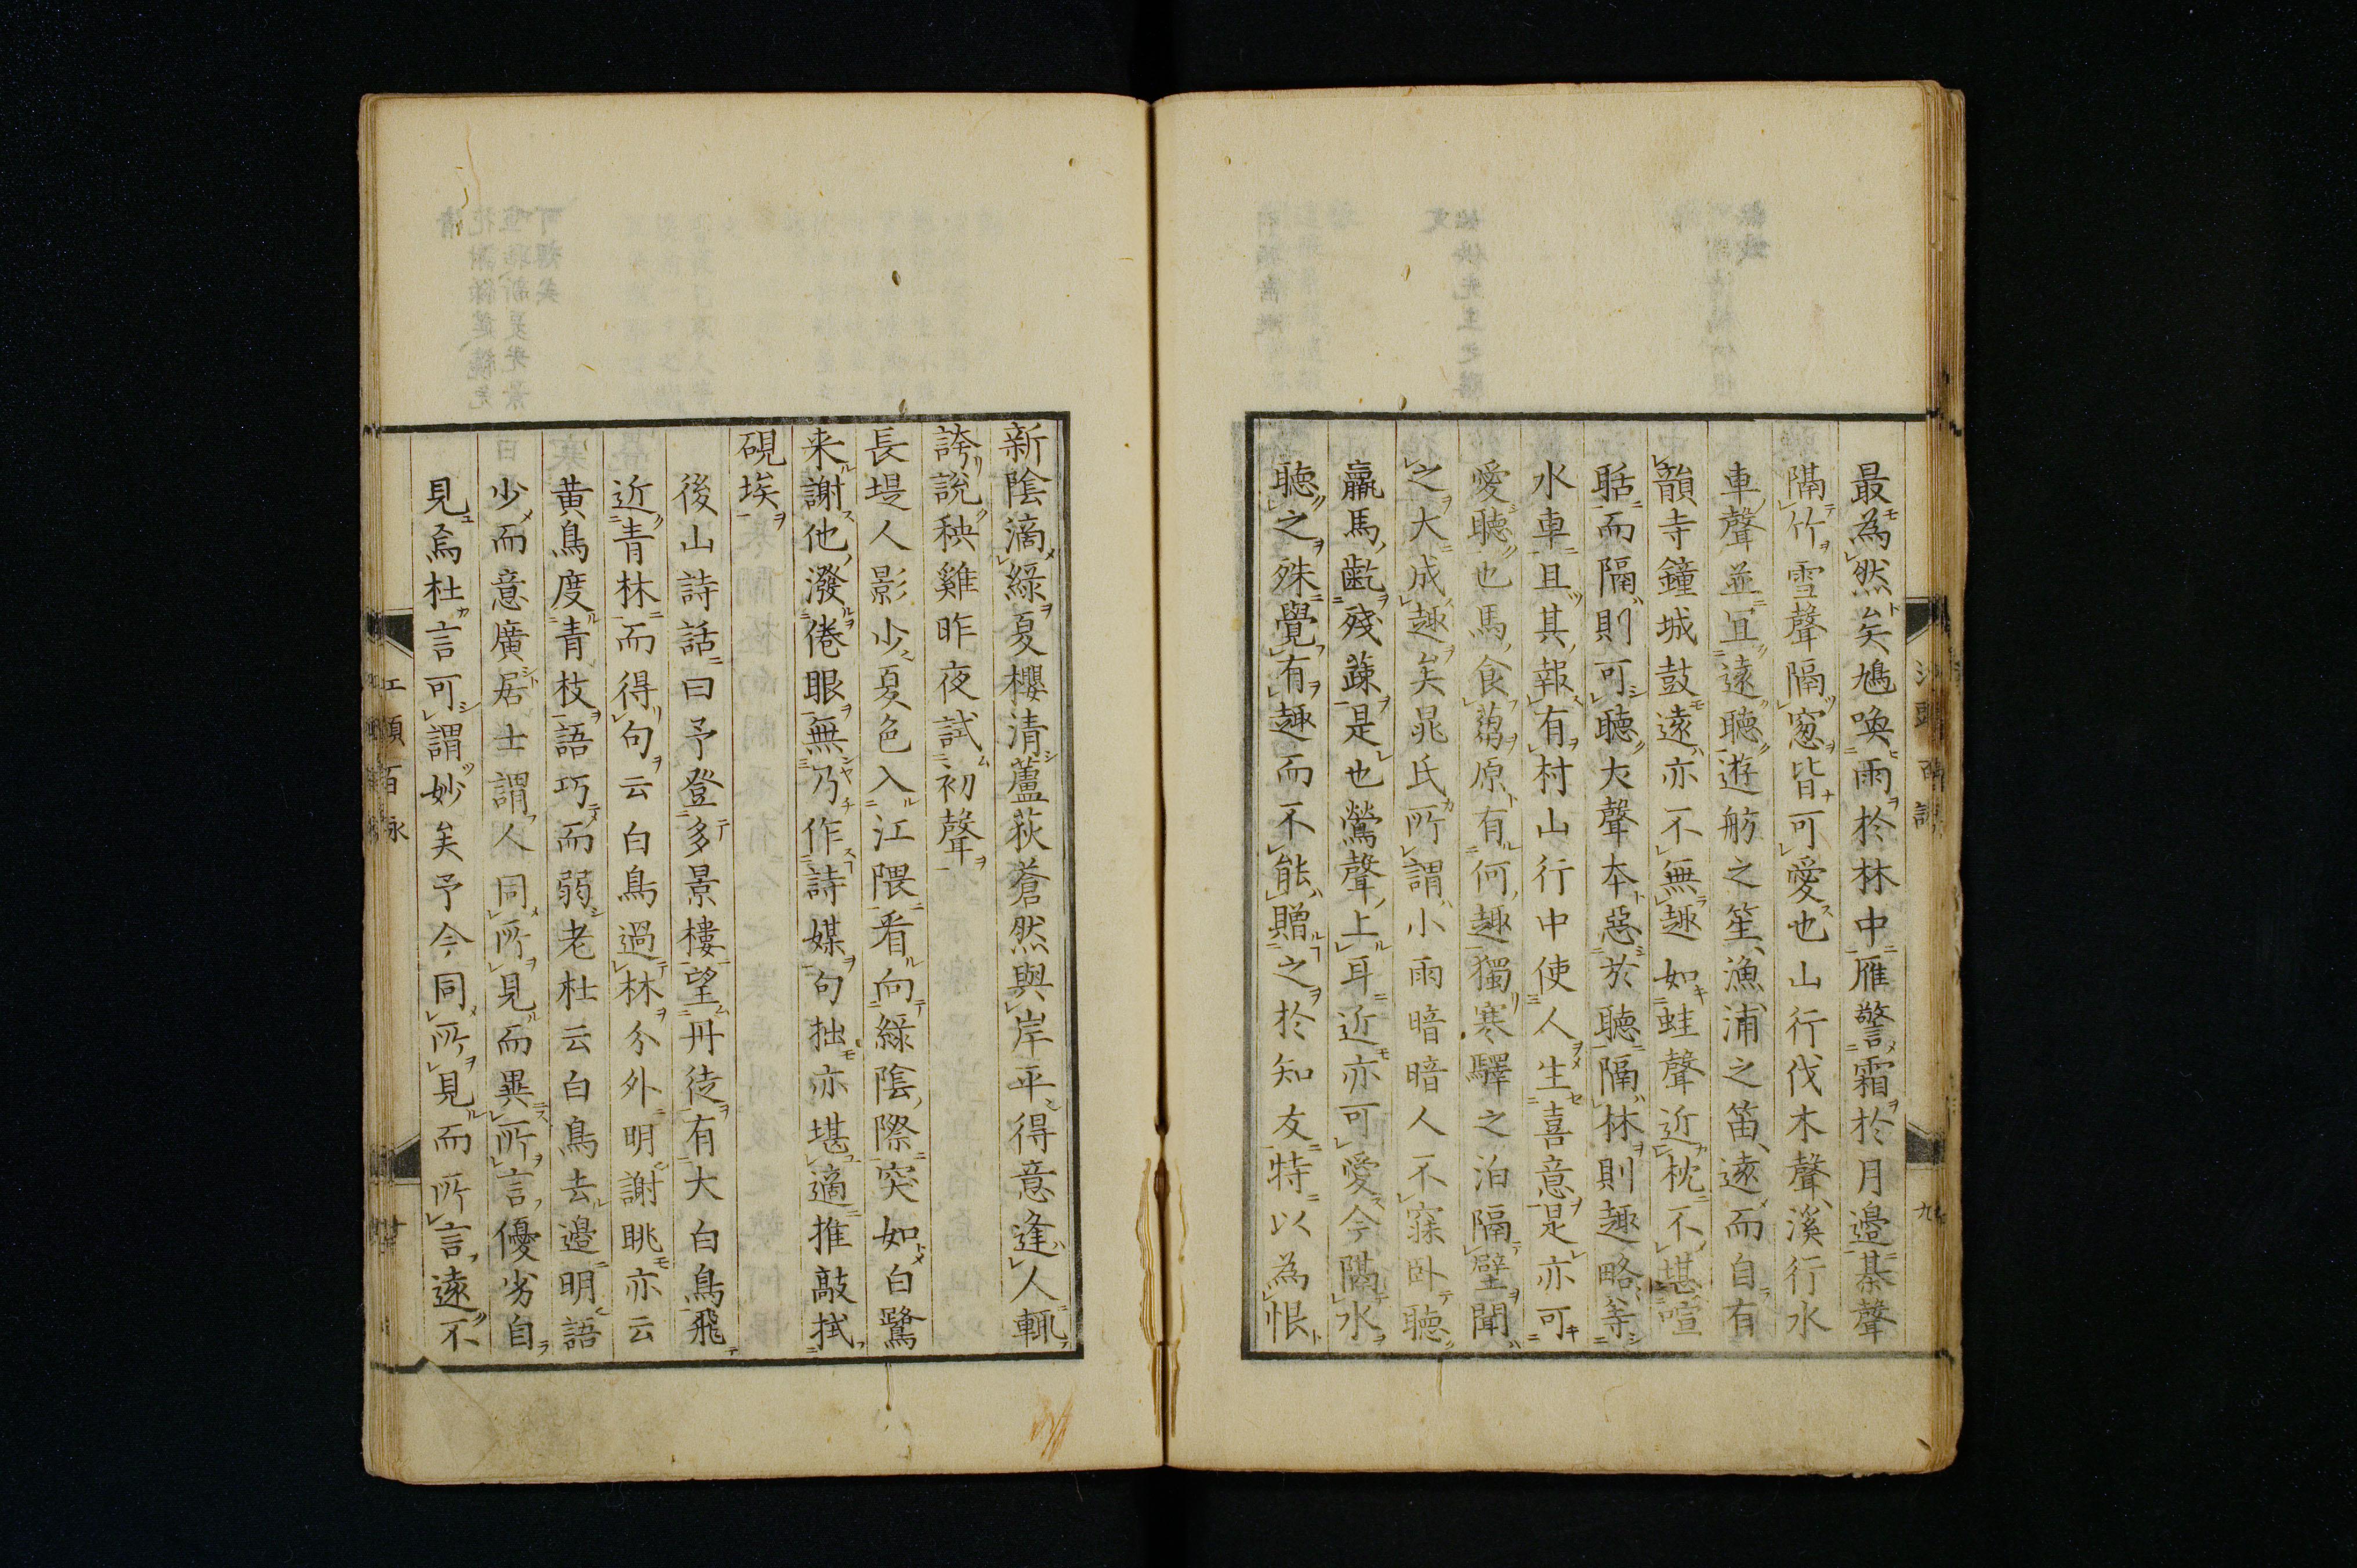 最為然矣鳩喚雨於林中雁警霜於月邉棊聲
隔竹雪聲隔窓皆可愛也山行伐木聲溪行水
車聲並宜遠聽遊舫之笙漁浦之笛遠而自有
韻寺鐘城鼓遠亦不無趣如蛙聲近枕不堪喧
聒而隔則可聽大聲本惡於聽隔林則趣略等
水車且其報有村山行中使人生喜意是亦可
愛聽也馬食蒭原有何趣獨寒驛之泊隔壁聞
之大成趣矣晁氏所謂小雨暗暗人不寐卧聽
羸馬齕殘蔬是也鶯聲上耳近亦可愛今隔水
聽之殊覺有趣而不能贈之於知友特以為恨
九
新陰滴綠夏櫻清蘆荻蒼然與岸平得意逢人輒
誇說秧雞昨夜試初聲
長堤人影少夏色入江隈看向綠陰際突如白鷺
来謝他潑倦眼無乃作詩媒句拙亦堪適推敲拭
硯埃
後山詩話曰予登多景樓望丹徒有大白鳥飛
近青林而得句云白鳥過林分外明謝眺亦云
黄鳥度青枝語巧而弱老杜云白鳥去邉明語
少而意廣居士謂人同所見而異所言優劣自
見焉杜言可謂妙矣予今同所見而所言遠不
江頭百詠
十